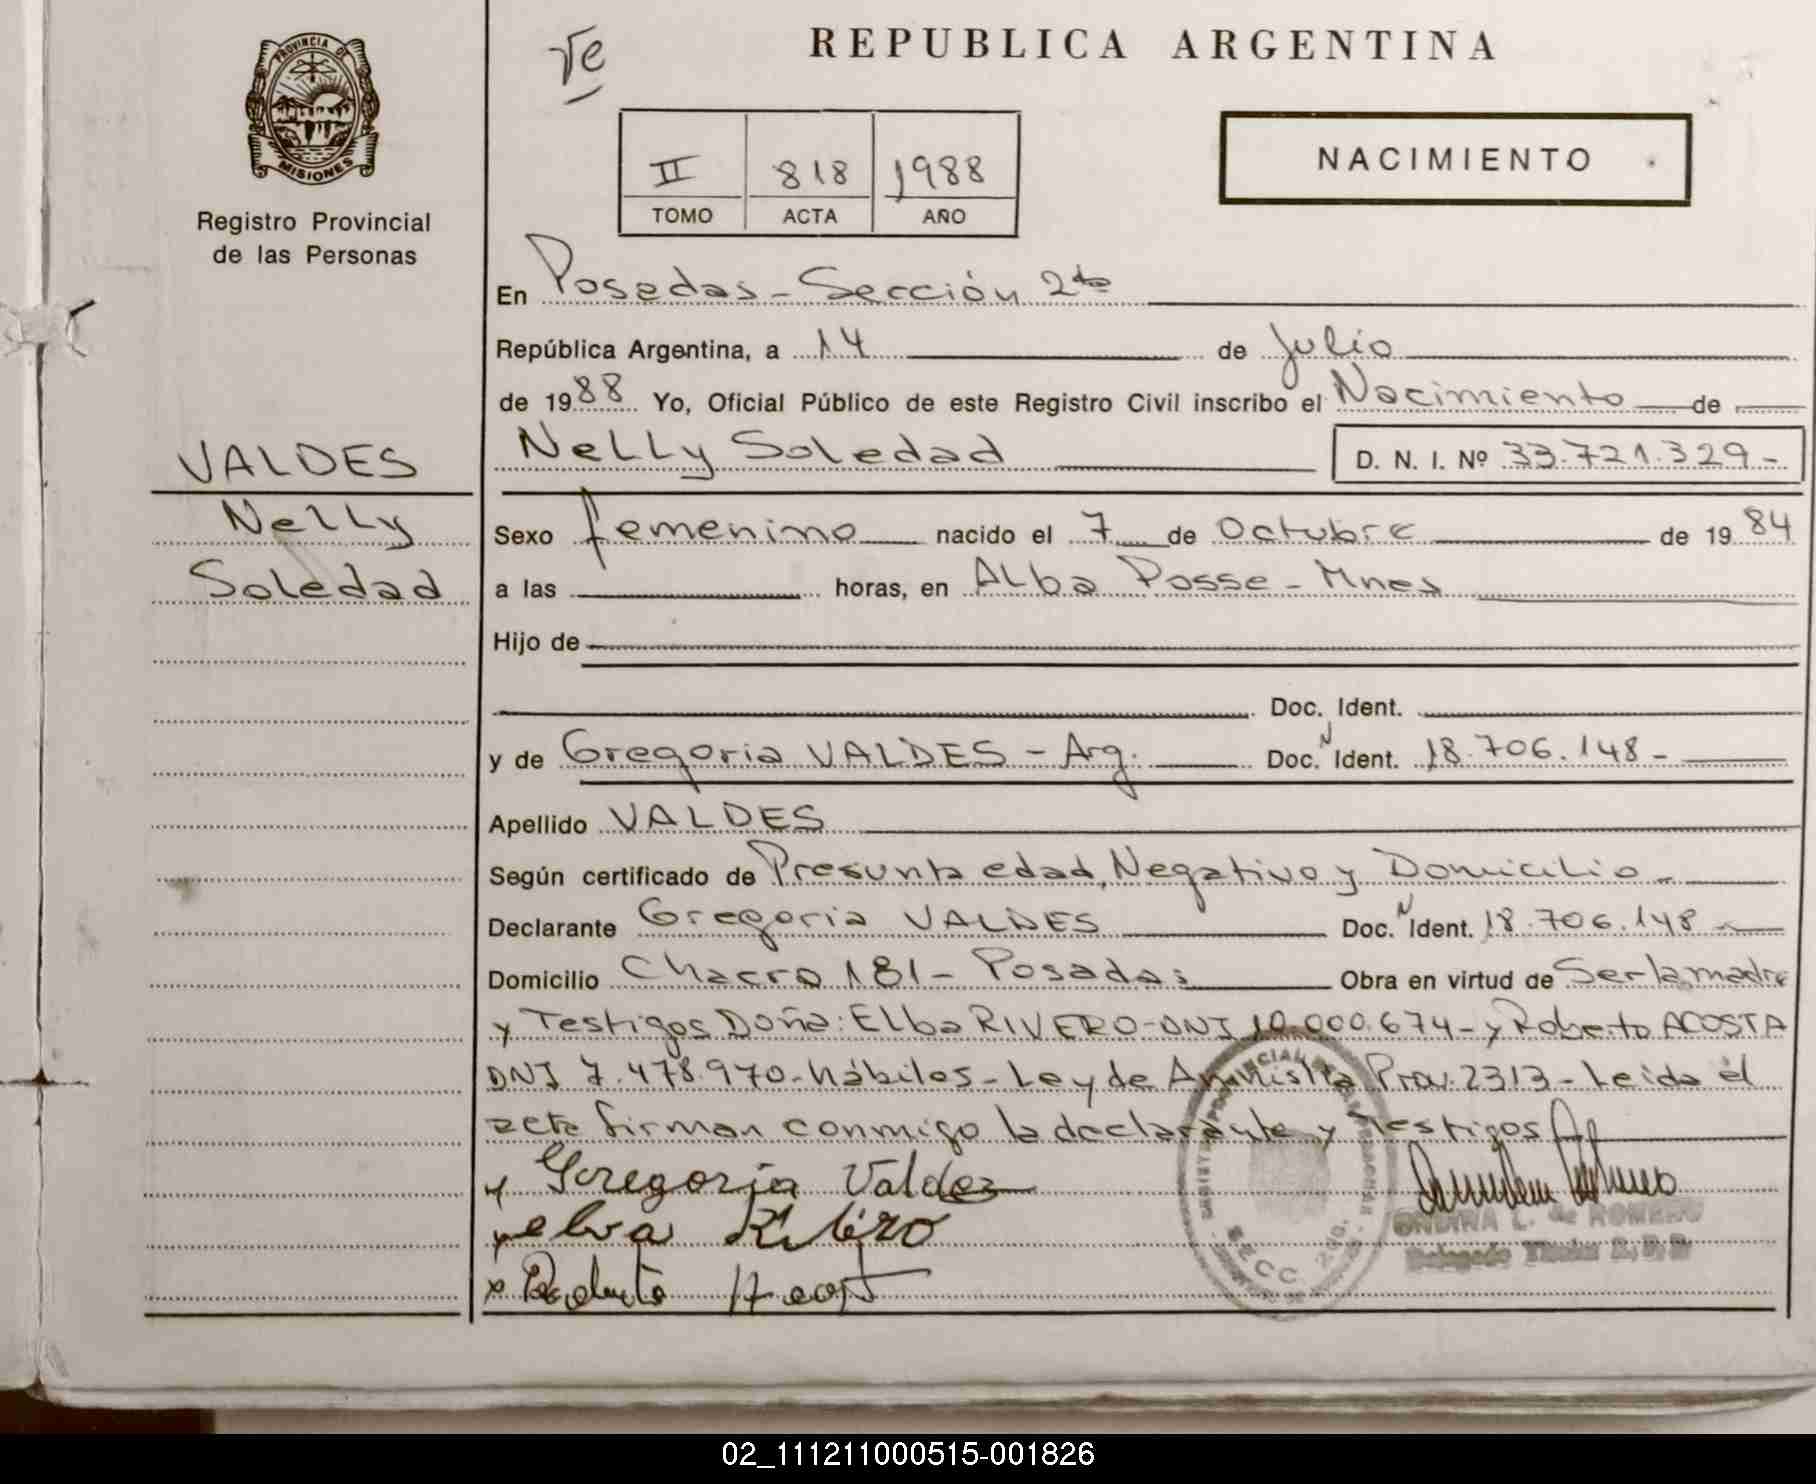 PROVINCIA DE
MISIONES
Registro Provincial
de las Personas
VALDES
Nelly
Soledad
REPUBLICA ARGENTINA
II 818 1988
TOMO ACTA AÑO
NACIMIENTO
En Posadas - Sección 2da
República Argentina, a 14 de Julio
de 1988 Yo, Oficial Público de este Registro Civil inscribo el Nacimiento de
Nelly Soledad D. N. I. Nº 33.721.329-
Sexo femenino nacido el 7 de Octubre de 1984
a las horas, en Alba Posse - Mnes
Hijo de
Doc. Ident.
y de Gregoria VALDES - Arg. Doc. N Ident. 18.706.148-
Apellido VALDES
Según certificado de Presunta edad, Negativo y Domicilio-
Declarante Gregoria VALDES Doc. N Ident. 18.706.148
Domicilio Chacra 181 - Posadas Obra en virtud de Ser la madre
y Testigos Doña: Elba RIVERO-DNI 10.000.674- y Roberto ACOSTA
DNI 7.478.970-hábiles-Ley de Amnistía Prov. 2313-Leida el
acta firman conmigo la declarante y testigos
Goregoria Valdez
elva Ribero
Roberto Acost
SECC. 2da.
ONDINA L. de ROMERO
Delegado Titular R.P.P.
02_111211000515-001826